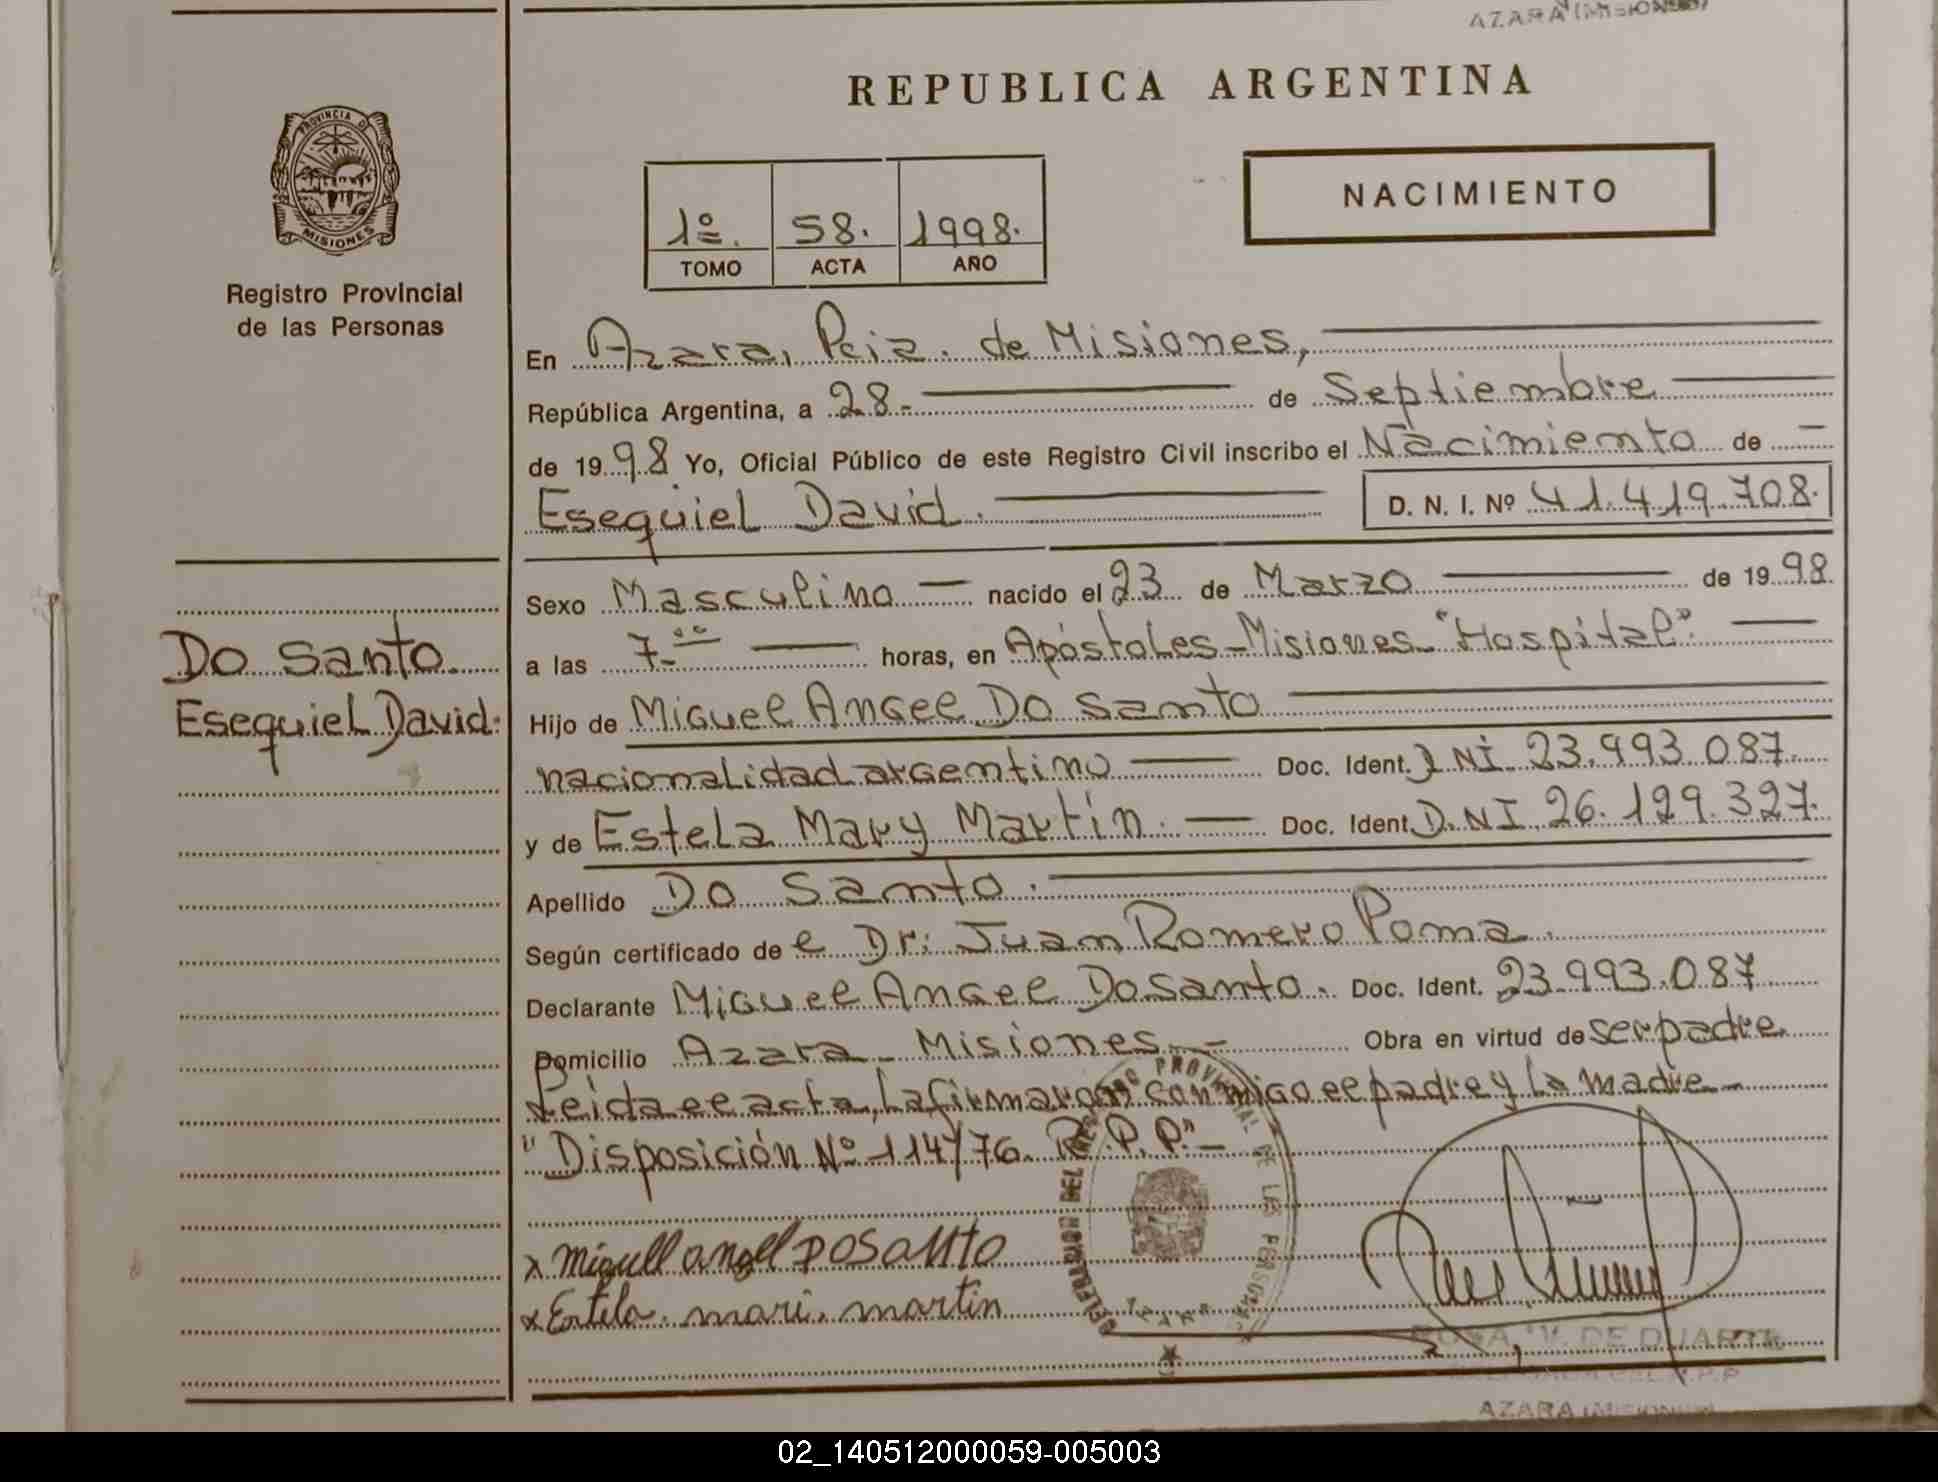 AZARA (MISIONES)
REPUBLICA ARGENTINA
PROVINCIA DE
MISIONES
Registro Provincial
de las Personas
1º. 58. 1998.
TOMO ACTA AÑO
NACIMIENTO
En Azara, Pcia. de Misiones,
República Argentina, a 28.- de Septiembre
de 19 98 Yo, Oficial Público de este Registro Civil inscribo el Nacimiento de
Esequiel David. D. N. I. Nº 41.419.708.
Sexo Masculino nacido el 23 de Marzo de 19 98.
a las 7.ºº horas, en Apóstoles-Misiones-"Hospital".
Do Santo
Esequiel David.
Hijo de Miguel Angel Do Santo
nacionalidad argentino Doc. Ident. DNI 23.993.087.
y de Estela Mary Martin. Doc. Ident. D.NI 26.129.327.
Apellido Do Santo.
Según certificado de e Dr: Juan Romero Poma.
Declarante Miguel Angel Do Santo. Doc. Ident. 23.993.087
Domicilio Azara - Misiones.- Obra en virtud de ser padre
Leida el acta, la firmaron conmigo el padre y la madre-
"Disposición Nº 114/76. R.P.P."-
x Miguell angel DOSANTO
x Estela. mari. martin
ROSA V. DE DUARTE
DELEGADA DEL R.P.P
AZARA (MISIONES)
02_140512000059-005003